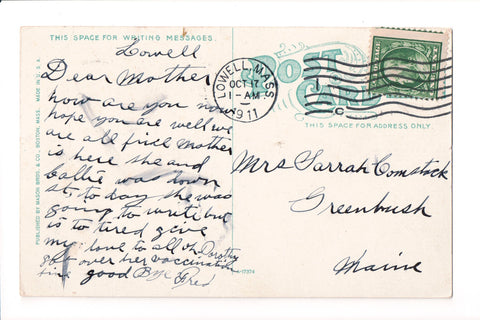 THIS SPACE FOR WRITING MESSAGES.
Lowell
Dear Mother
how are you now
hope you are well we
are all fine Mother
is here she and
Callie was down
st. to day she was
going to write but
is to tired give
my love to all oh Dorothy
got over her vaccination
fine good Bye Fred
PUBLISHED BY MASON BROS. & CO., BOSTON, MASS. MADE IN U.S.A.
POST CARD
LOWELL, MASS.
OCT 17
1-AM
1911
C
THIS SPACE FOR ADDRESS ONLY.
Mrs Sarrah Comstick
Greenbush
Maine